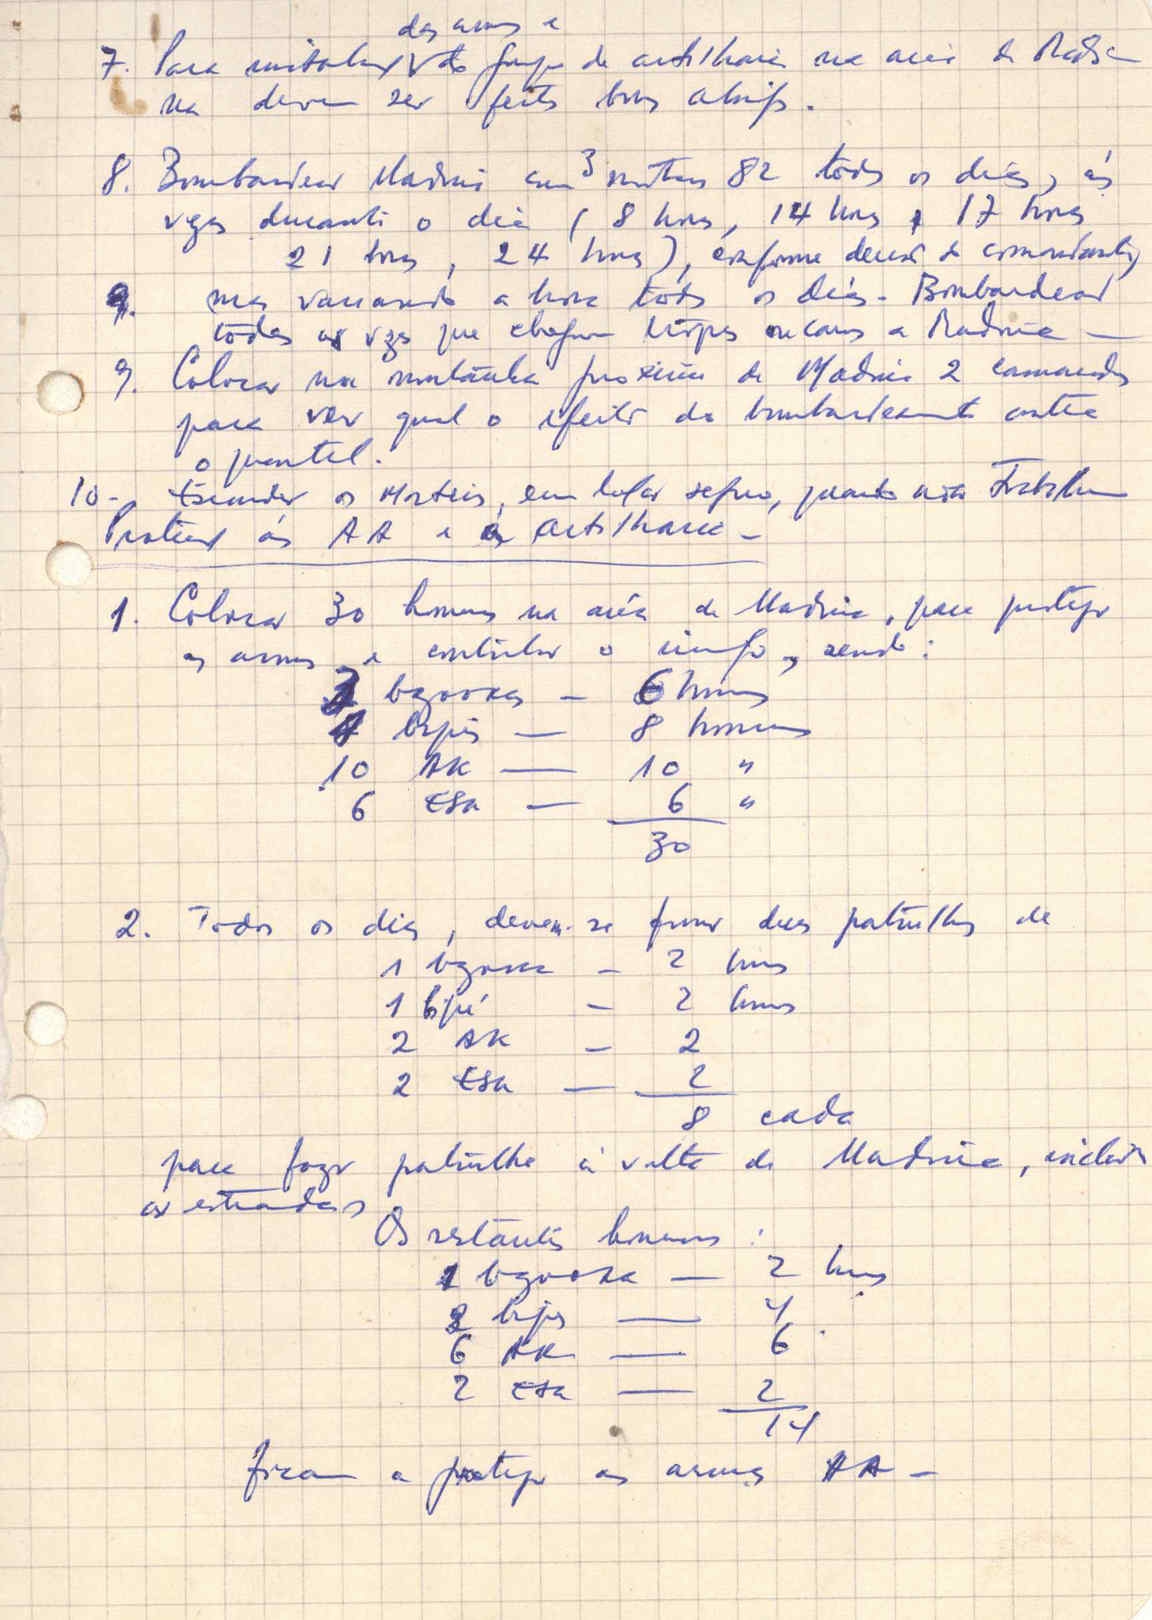 das armas e
7. Para instalação do grupo de artilharia na area de Madi-
na devem ser feitos bons abrigos.
8. Bombardear Madina com 3 morteiros 82 todos os dias, ás
vezes durante o dia (8 horas, 14 horas, 17 horas
21 horas, 24 horas), conforme decisão do comandante,
mas variando a hora todos os dias. Bombardear
todas as vezes que chegam tropas ou carros a Madina —
9. Colocar na montanha proxima de Madina 2 camaradas
para ver qual o efeito do bombardeamento contra
o quartel.
10- Esconder os morteiros, em lugar seguro, quando não trabalham
Protecção ás AA e á artilharia —
1. Colocar 30 homens na area de Madina, para proteger
as armas e controlar o inimigo, sendo:
3 bazookas — 6 homens
4 bipés — 8 homens
10 AK — 10 "
6 ESA — 6 "
30
2. Todos os dias, devem-se formar duas patrulhas de
1 bazooka — 2 homens
1 bipé — 2 homens
2 AK — 2
2 ESA — 2
8 cada
para fazer patrulha á volta de Madina, incluindo
as estradas
Os restantes homens:
1 bazooka — 2 homens
2 bipés — 4
6 AK — 6
2 ESA — 2
14
ficam a proteger as armas AA —